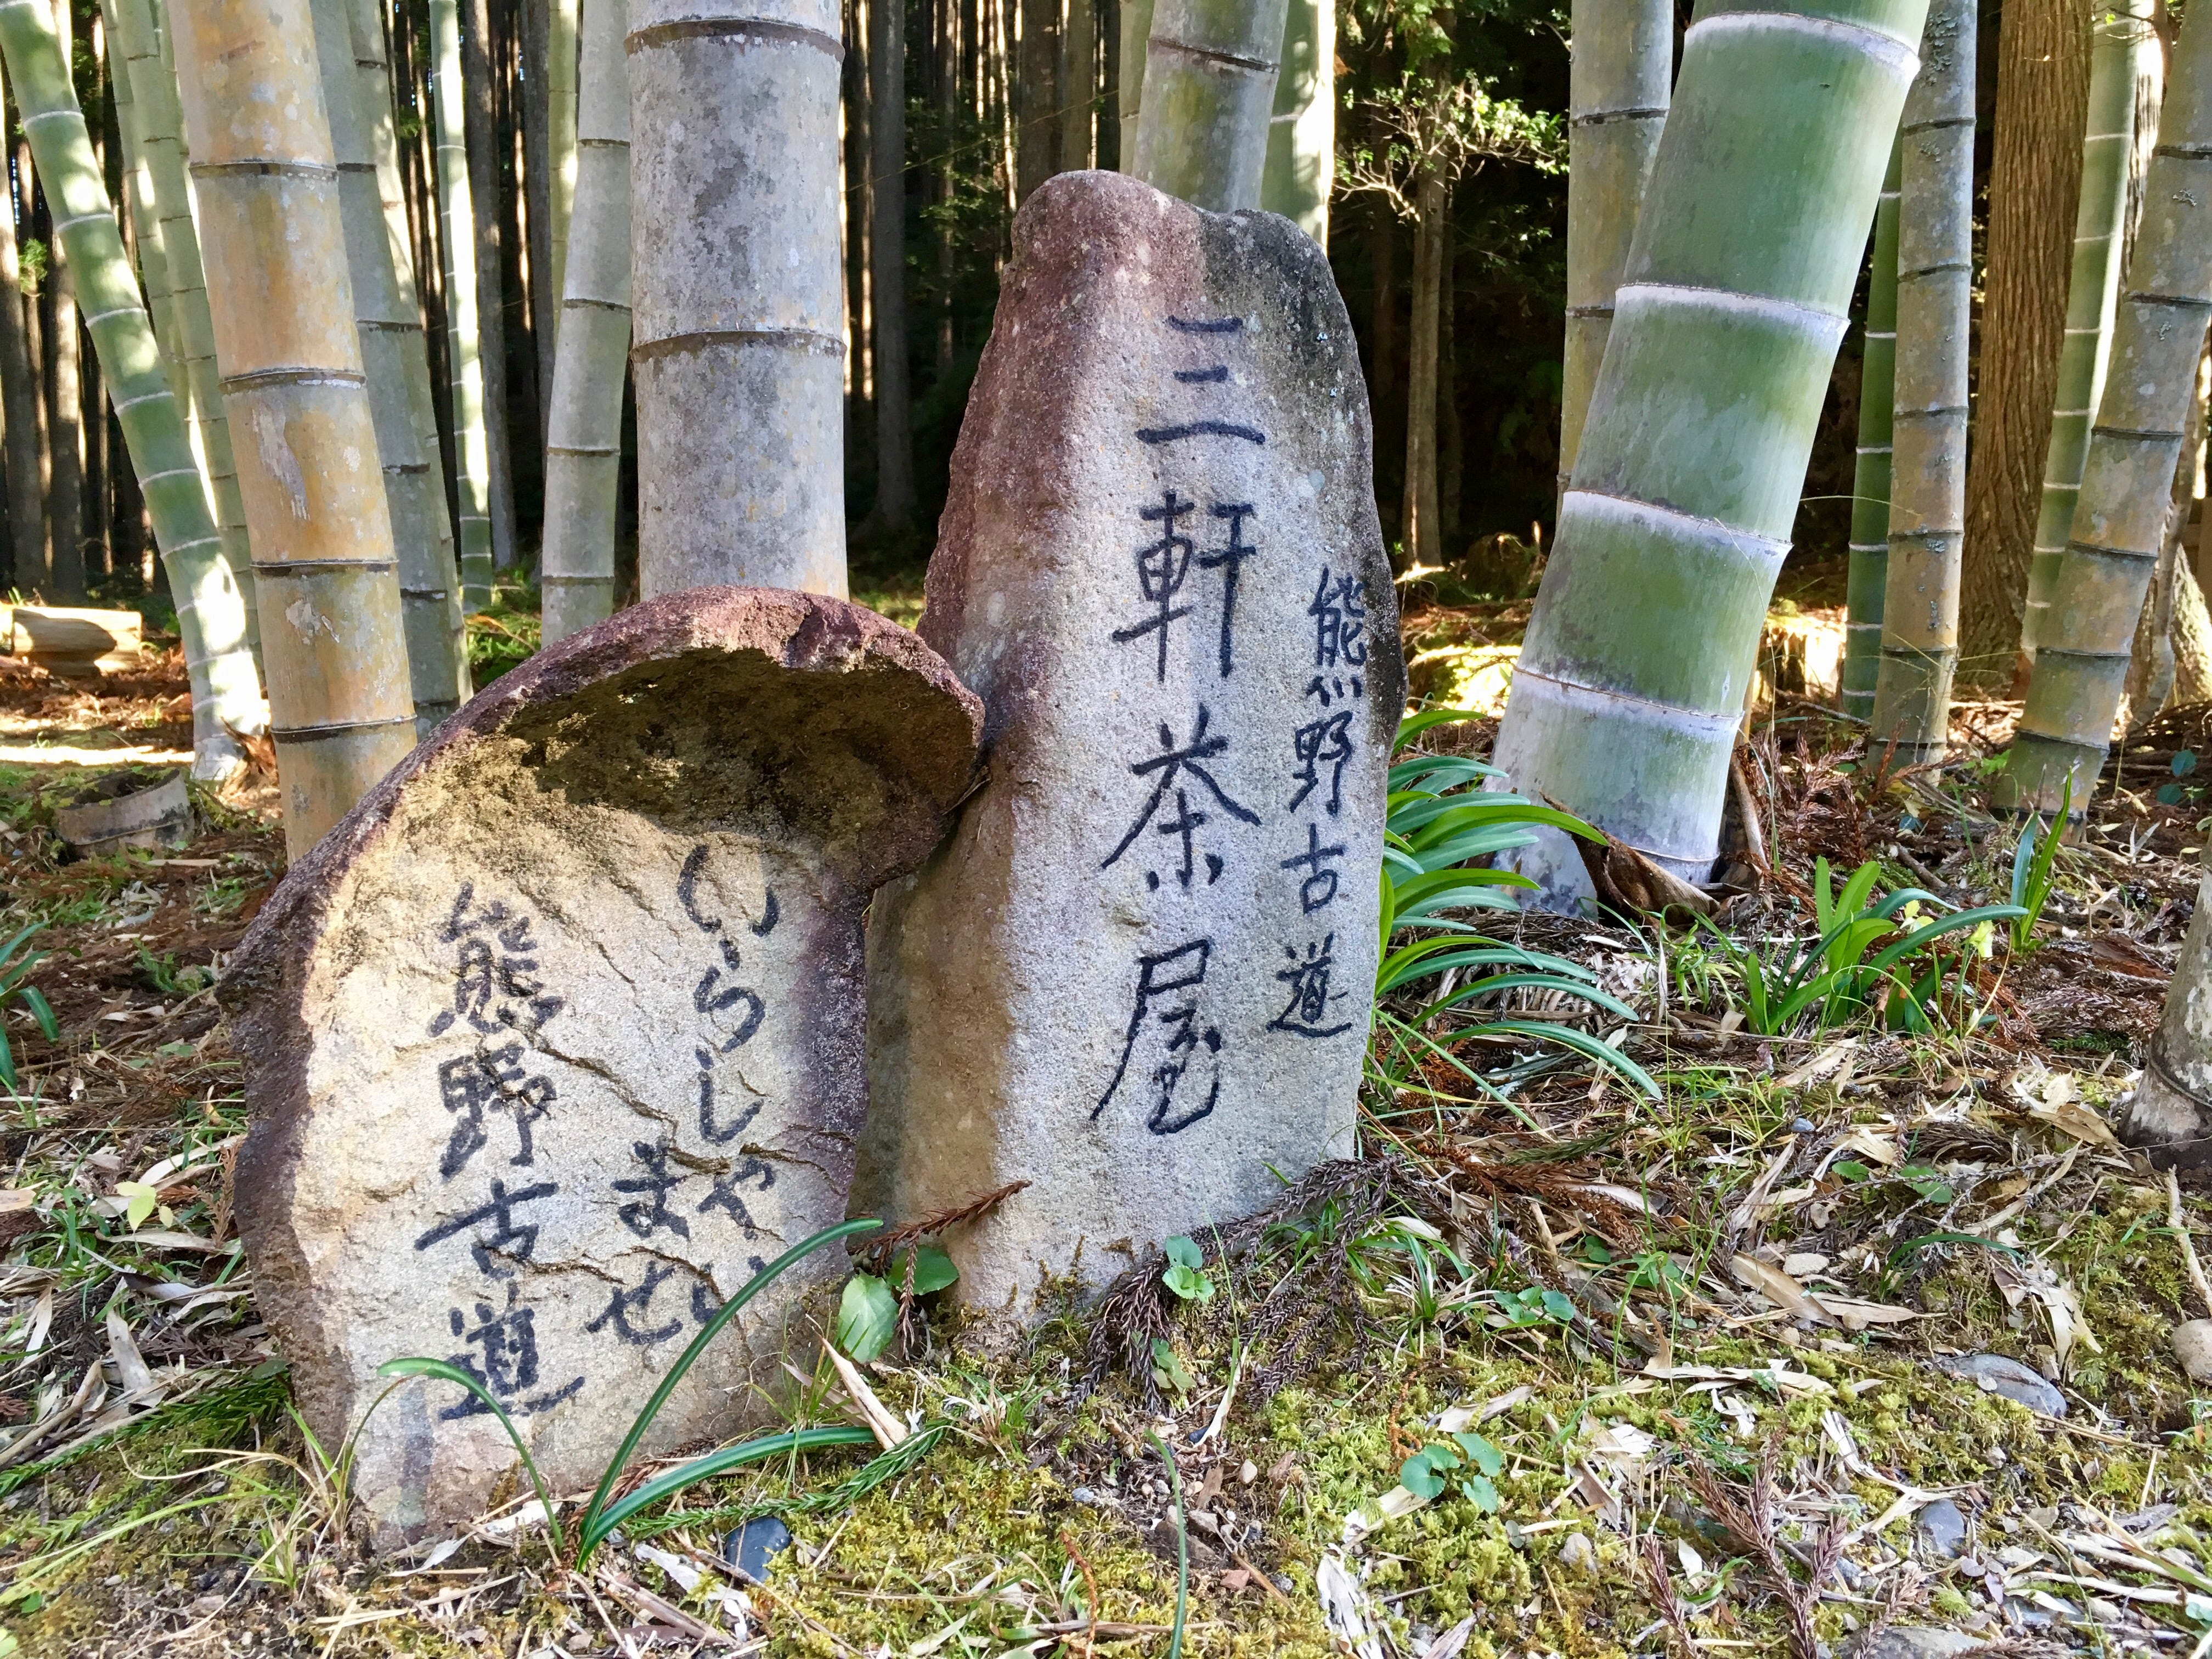 熊野古道
三軒茶屋
いらしゃい
ませ
熊野古道